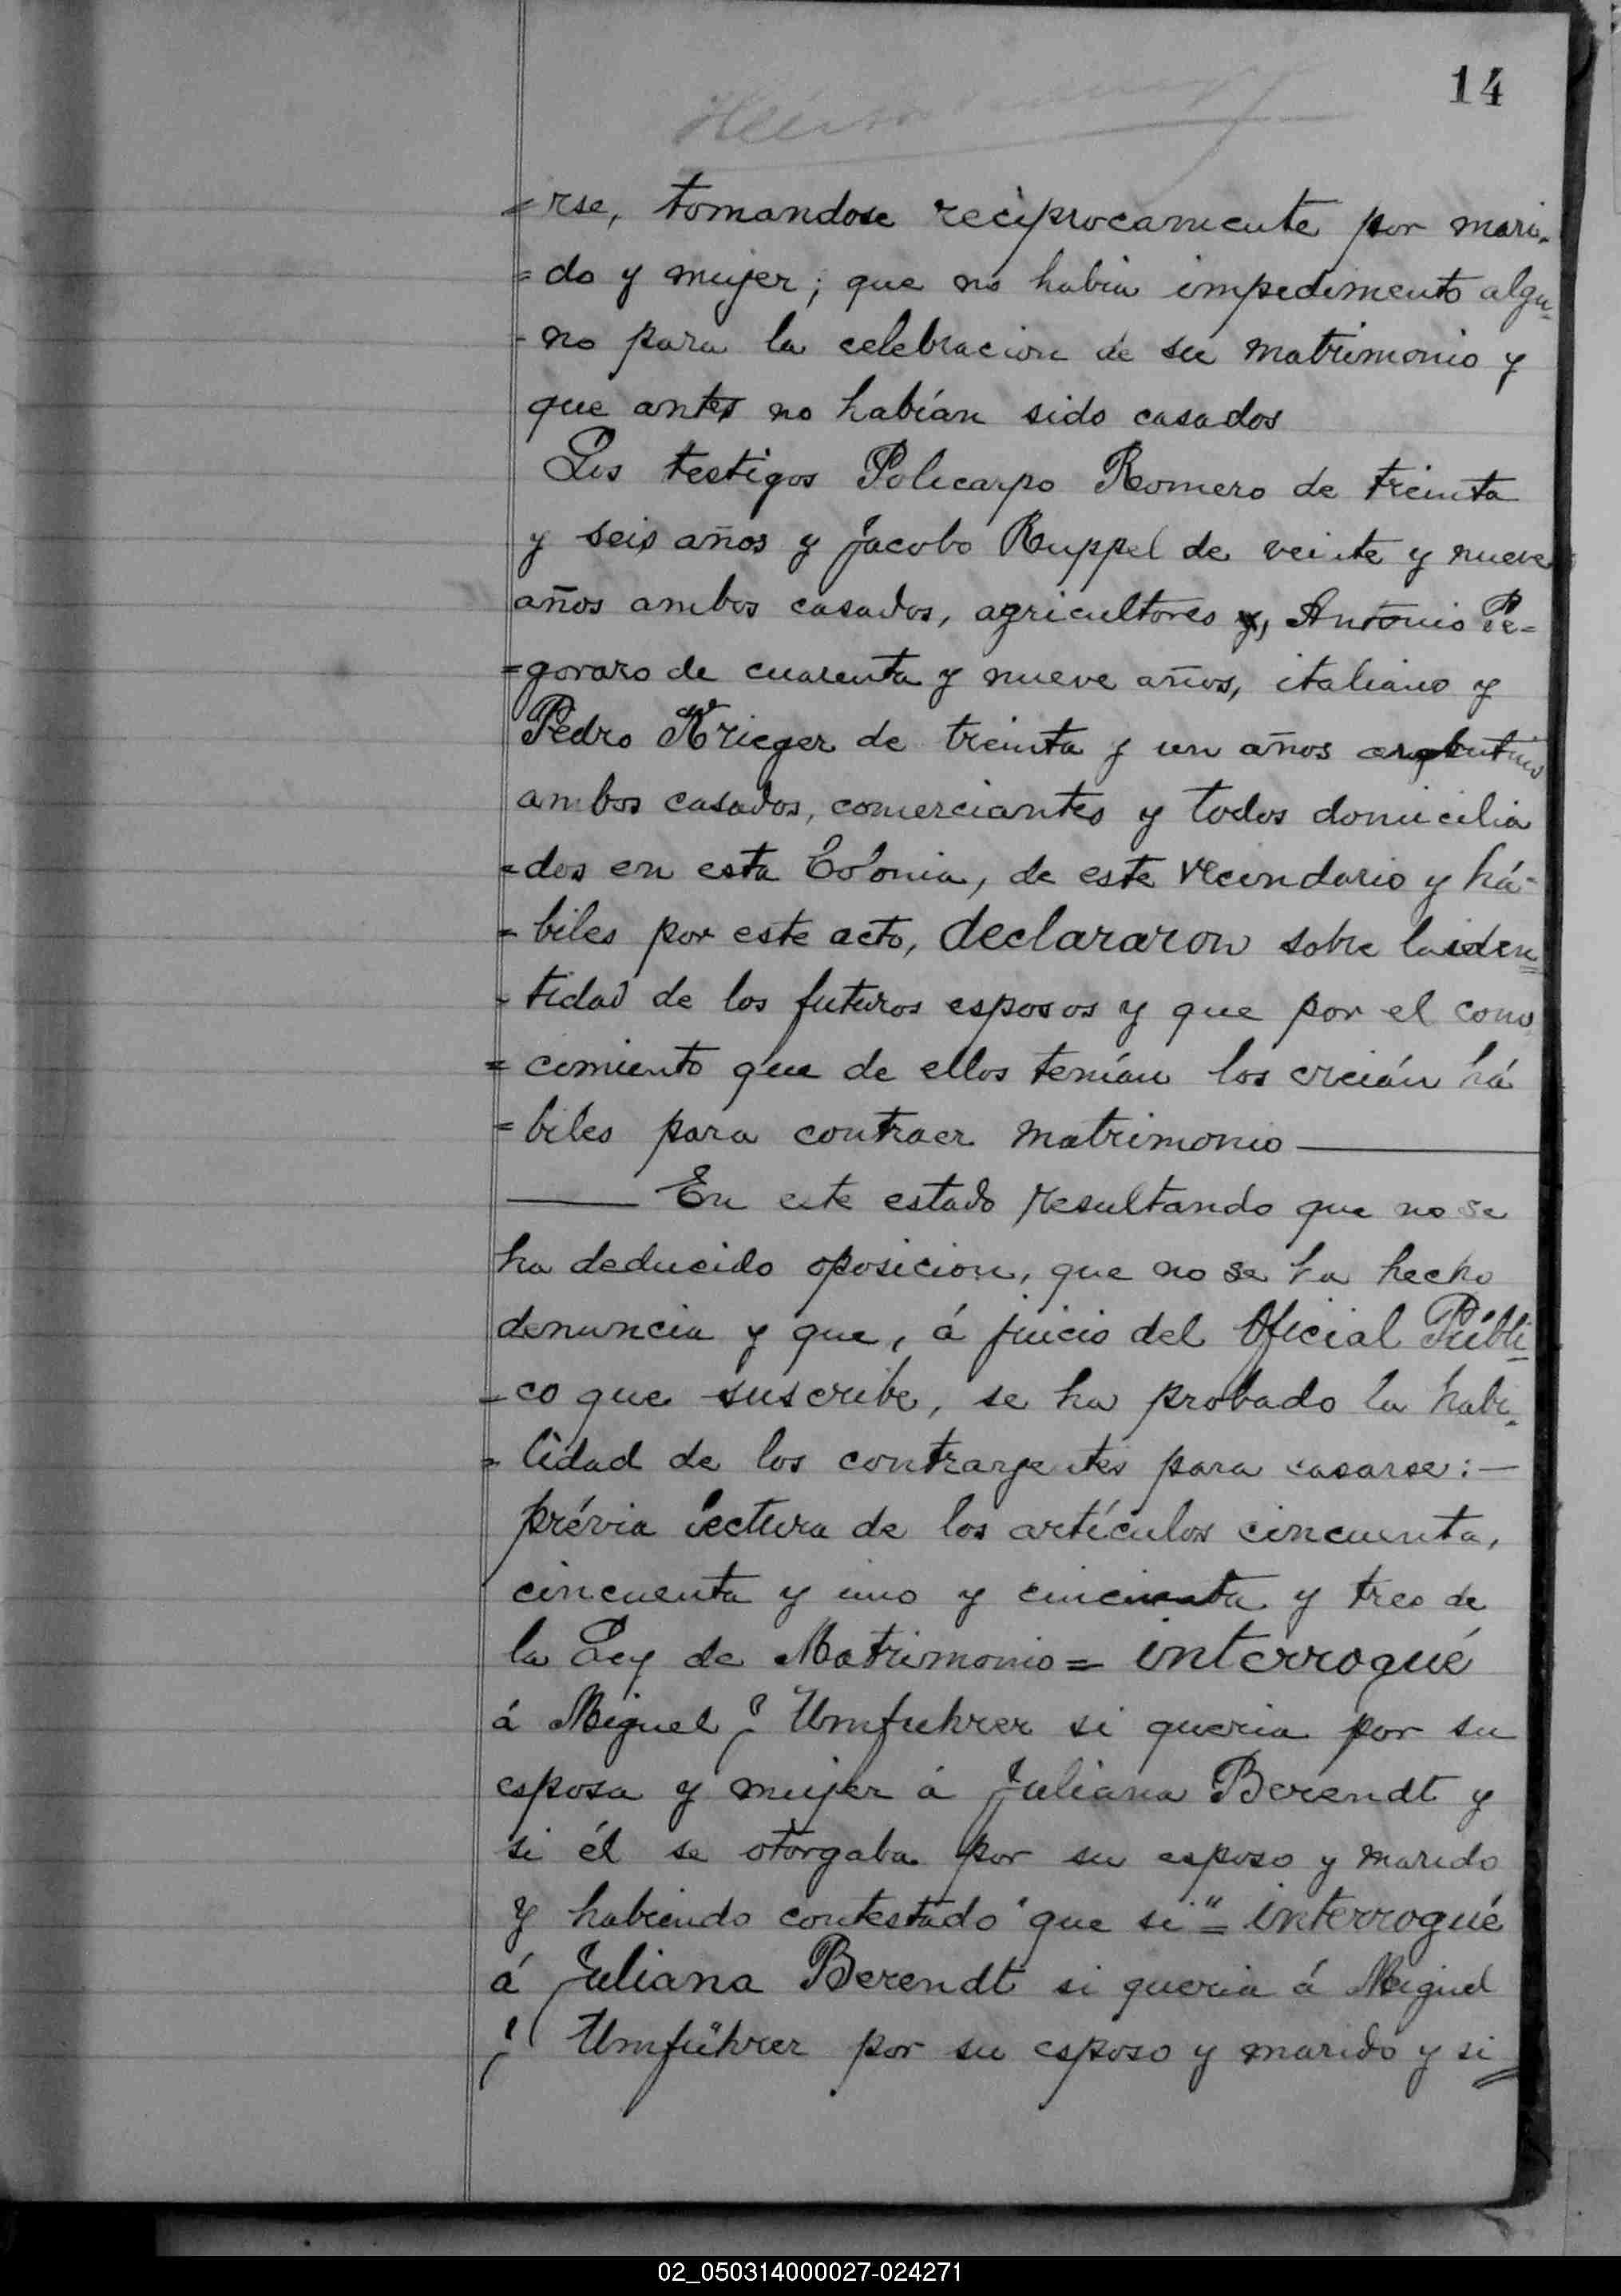 14
=rse, tomandose reciprocamente por mari-
=do y mujer; que no habia impedimento algu-
-no para la celebracion de su matrimonio y
que antes no habían sido casados
Los testigos Policarpo Romero de treinta
y seis años y Jacobo Ruppel de veinte y nueve
años ambos casados, agricultores y, Antonio Pe=
=goraro de cuarenta y nueve años, italiano y
Pedro Krieger de treinta y un años argentino
ambos casados, comerciantes y todos domicilia
=dos en esta Colonia, de este vecindario y há-
=biles por este acto, declararon sobre la iden=
-tidad de los futuros esposos y que por el cono
=cimiento que de ellos tenían los creián há
=biles para contraer matrimonio —
— En este estado resultando que no se
ha deducido oposicion, que no se ha hecho
denuncia y que, á juicio del Oficial Públi=
-co que suscribe, se ha probado la habi-
=lidad de los contrayentes para casarse: —
prévia lectura de los artículos cincuenta,
cincuenta y uno y cincuenta y tres de
la Ley de Matrimonio = interrogué
á Miguel J. Umfuhrer si queria por su
esposa y mujer á Juliana Berendt y
si él se otorgaba por su esposo y marido
y habiendo contestado "que si" = interrogué
á Juliana Berendt si queria á Miguel
J. Umführer por su esposo y marido y si
02_050314000027-024271